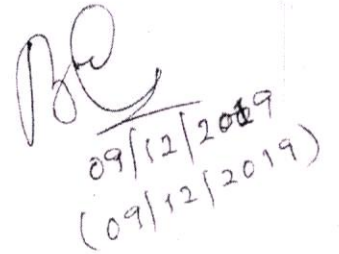 09/12/2019
(09/12/2019)